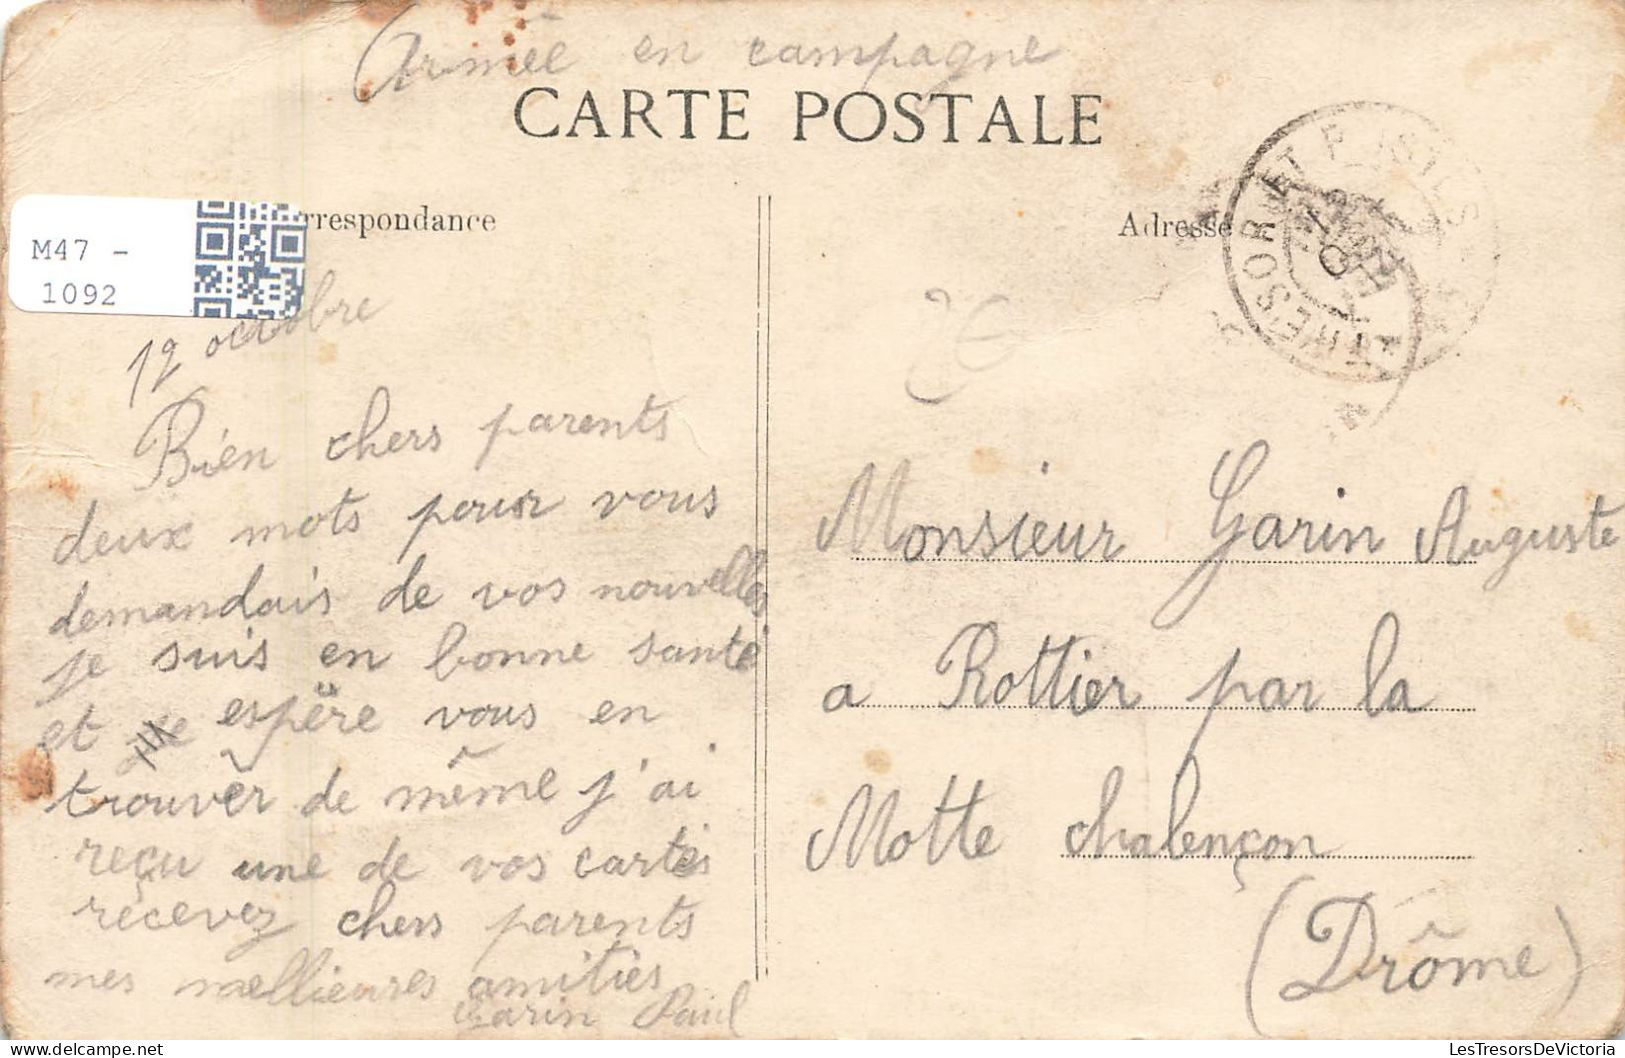 Armée en campagne
CARTE POSTALE
rrespondance
Adresse
M47 -
1092
TRESOR ET POSTES
12 octobre
Bien chers parents
deux mots pour vous
demandais de vos nouvelles
je suis en bonne santé
et espëre vous en
trouvèr de même j'ai
reçu une de vos cartes
rècevez chers parents
mes mellieures amitiés
Garin Paul
Monsieur Garin Auguste
a Rottier par la
Motte chalençon
(Drôme)
LesTresorsDeVictoria